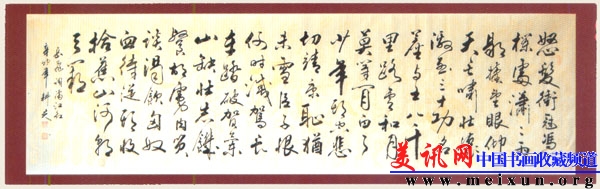 怒髮衝冠馮
欄處瀟瀟雨
歇擡望眼仰
天長嘯壯懷
激烈三十功名
塵與土八千
里路雲和月
莫等閒白了
少年頭空悲
切靖康恥猶
未雪臣子恨
何時滅駕長
車踏破賀蘭
山缺壯志饑
餐胡虜肉笑
談渴飲匈奴
血待從頭收
拾舊山河朝
天闕
岳飛詞滿江紅
美讯网
中国书画收藏频道
www.meixun.org